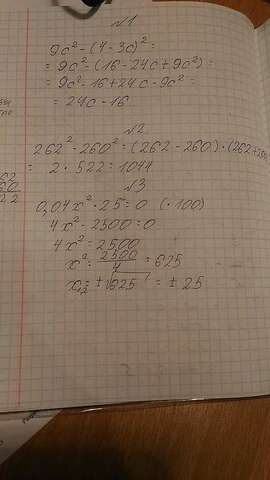 №1
9c² - (4 - 3c)² =
= 9c² - (16 - 24c + 9c²) =
= 9c² - 16 + 24c - 9c² =
= 24c - 16
№2
262² - 260² = (262 - 260) · (262 + 260)
= 2 · 522 = 1044
№3
0,04x² - 25 = 0 (· 100)
4x² - 2500 = 0
4x² = 2500
x² = 2500/4 = 625
x₁,₂ = ± √625 = ± 25